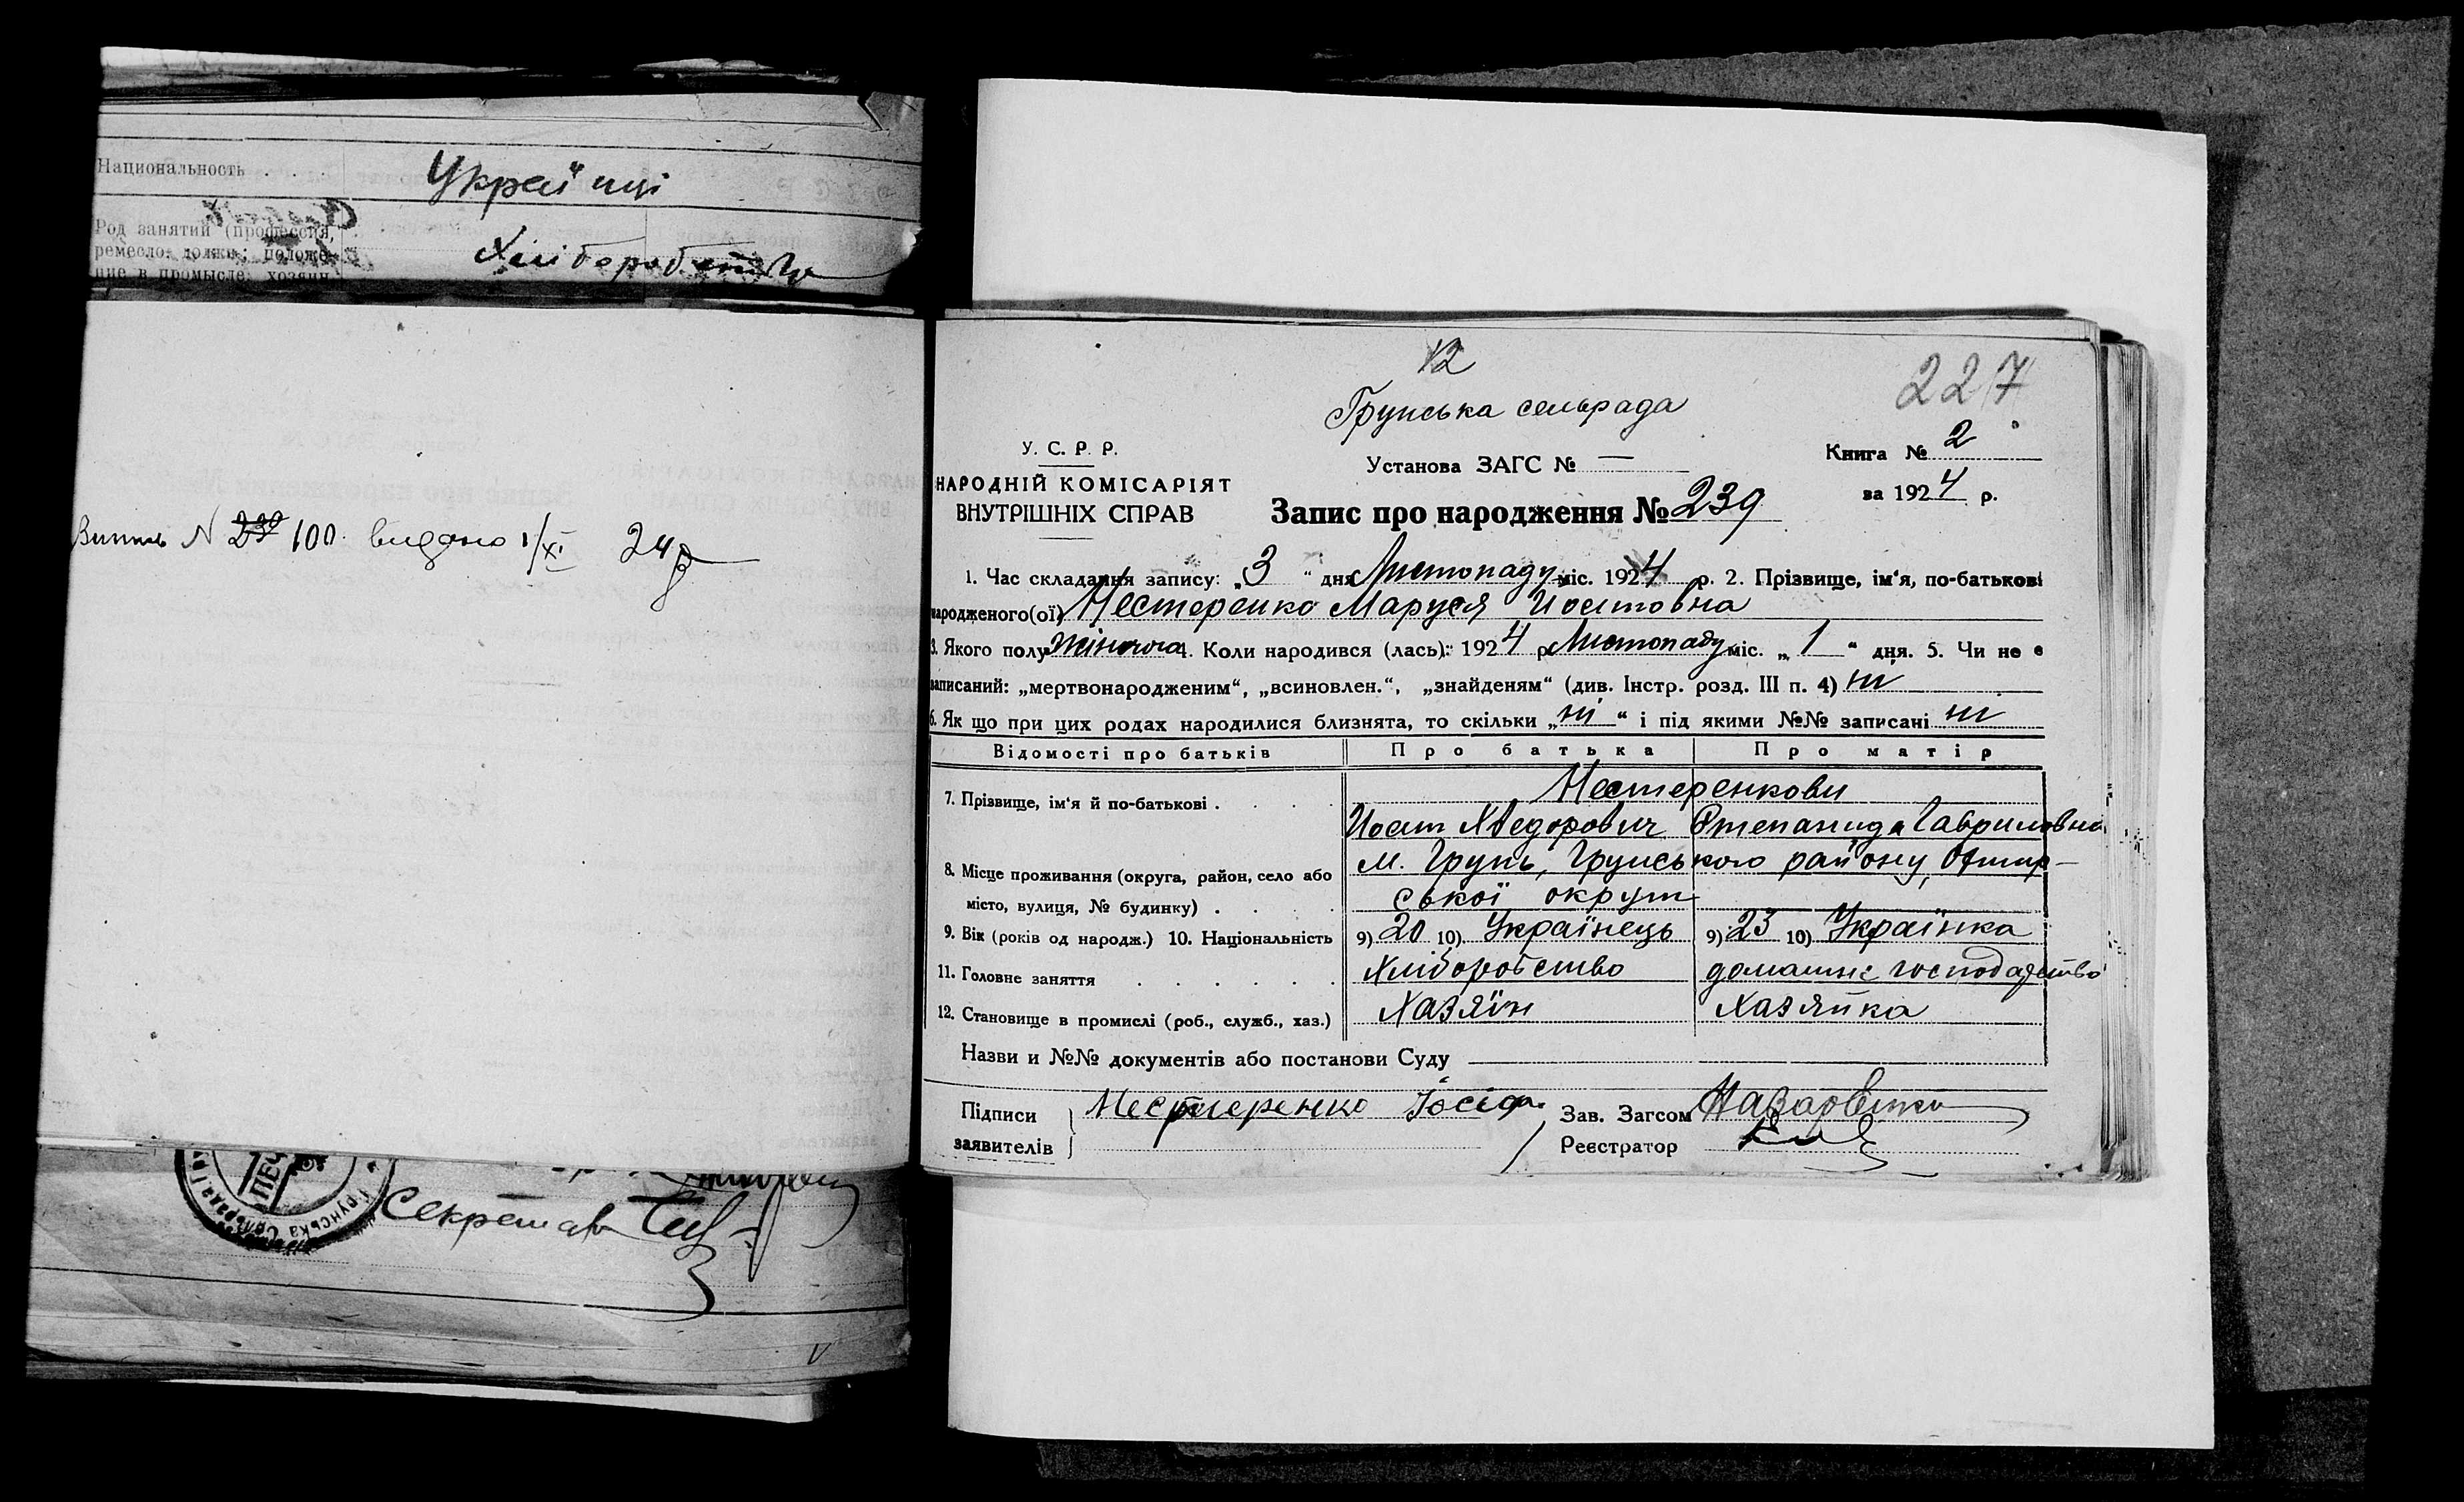 Национальность . . .
Украïнці
Род занятий (профессия,
ремесло; должн; положе-
ние в промысле: хозяин,
Хліборобство
N 239 100. видано 1/XI 24 р
Грунська Сельрада
Секретарь
12
227
Грунська сельрада
У. С. Р. Р.
НАРОДНІЙ КОМІСАРІЯТ
ВНУТРІШНІХ СПРАВ
Установа ЗАГС № —
Книга № 2
за 1924 р.
Запис про народження № 239
1. Час складання запису: „ 3 “ дня Листопаду міс. 1924 р. 2. Прізвище, ім‘я, по-батькові
народженого(ої) Нестеренко Маруся Иосиповна
3. Якого полу жіночого 4. Коли народився (лась): 1924 р. Листопаду міс. „ 1 “ дня. 5. Чи не є
записаний: „мертвонародженим“, „всиновлен.“, „знайденям“ (див. Інстр. розд. III п. 4) ні
6. Як що при цих родах народилися близнята, то скільки „ ні “ і під якими №№ записані ні
Відомості про батьків Про батька Про матір
7. Прізвище, ім‘я й по-батькові . . . .
Нестеренкови
Иосип Хведорович Степанида Гавриловна
8. Місце проживання (округа, район, село або
місто, вулиця, № будинку) . . . .
м. Грунь, Грунського району, Охтир-
ської округи
9. Вік (років од народж.) 10. Національність 9) 20 10) Українець 9) 23 10) Українка
11. Головне заняття . . . . . . Хліборобство домашнє господарство
12. Становище в промислі (роб., служб., хаз.) Хазяїн Хазяйка
Назви и №№ документів або постанови Суду
Підписи
заявителів
Нестеренко Йосіф
Зав. Загсом
Реєстратор